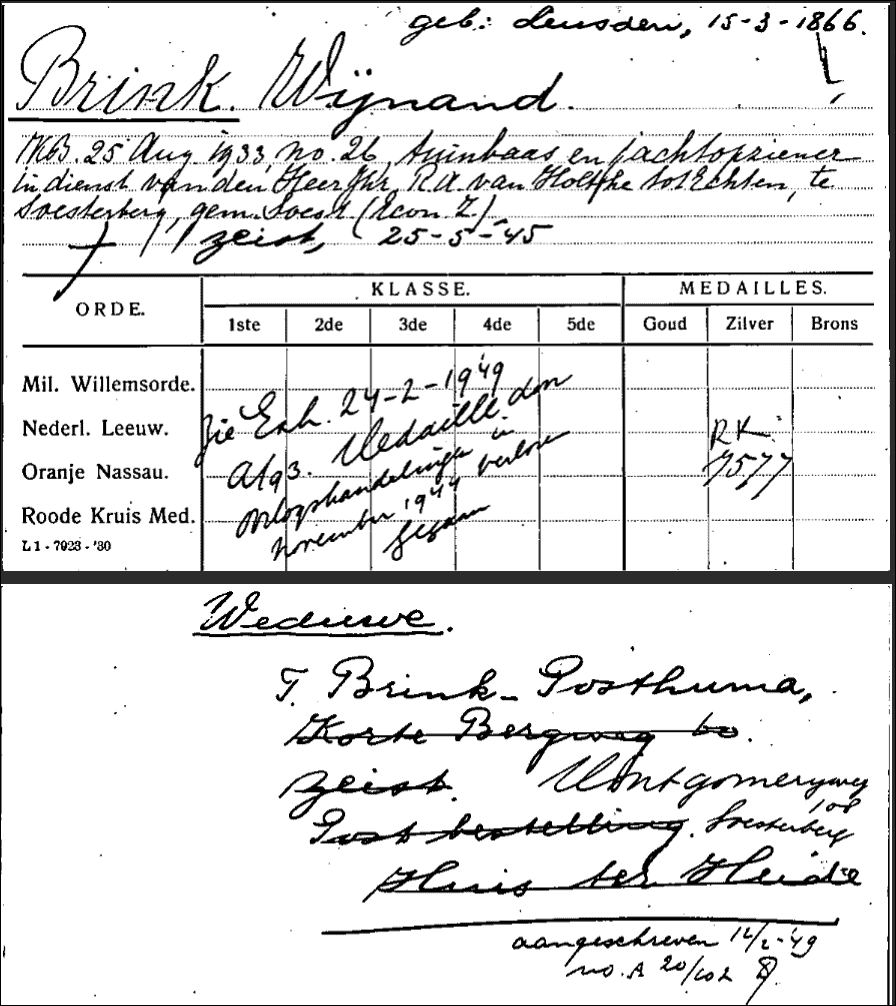 geb: Leusden, 15-3-1866.
Brink. Wijnand.
K.B. 25 Aug 1933, no. 26, tuinbaas en jachtopziener
in dienst van den Heer Jhr. R.A. van Holthe tot Echten, te
Soesterberg, gem. Soest (Econ. Z.)
† Zeist, 25-5-'45
ORDE. KLASSE. MEDAILLES.
1ste 2de 3de 4de 5de Goud Zilver Brons
Mil. Willemsorde.
Nederl. Leeuw.
Oranje Nassau.
Roode Kruis Med.
L 1 - 7923 - '30
Zie Exh. 24-2-1949
A193. Medaille door
oorlogshandelingen in
november 1944 verloren
gegaan
R.K.
7577
Weduwe.
T. Brink-Posthuma,
Korte Bergweg 60.
Zeist. Montgomeryweg
108
Postbestelling. Soesterberg
Huis ter Heide
aangeschreven 12/2-'49
no. A 20/602